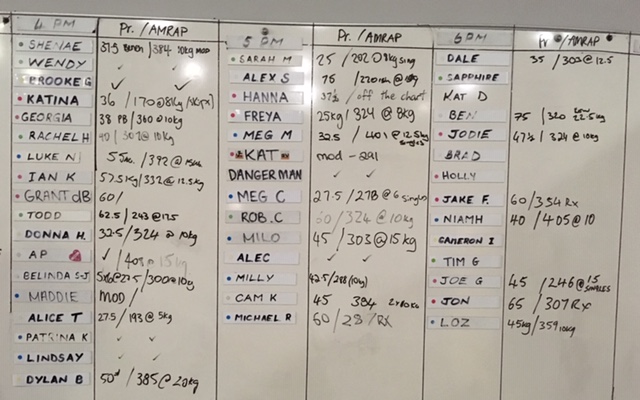 4 PM Pr. / AMRAP
SHENAE 37.5 Bench / 384 10kg mod
WENDY ✓ ✓
BROOKE G ✓ ✓
KATINA 36 / 170 @ 8kg
GEORGIA 38 PB / 360 @ 10kg
RACHEL H 40 / 302 @ 10kg
LUKE N / 392 @ 15kg
IAN K 57.5kg / 332 @ 12.5kg
GRANT dB 60 /
TODD 62.5 / 243 @ 17.5
DONNA H. 32.5 / 324 @ 10kg
AP ✓ / @ 15kg
BELINDA S-J / 300 @ 10kg
MADDIE MOD /
ALICE T 27.5 / 193 @ 5kg
PATRINA K ✓ ✓
LINDSAY ✓ ✓
DYLAN B 50 / 385 @ 20kg
5 PM Pr. / AMRAP
SARAH M 25 / 202 @ 8kg sing
ALEX S
HANNA 37½ / off the chart
FREYA 25kg / 324 @ 8kg
MEG M 32.5 / 401 @ 12.5kg singles
KAT mod - 291
DANGERMAN ✓ ✓
MEG C 27.5 / 278 @ 6 singles
ROB.C / 324 @ 10kg
MILO 45 / 303 @ 15kg
ALEC ✓ ✓
MILLY 42.5 / 288 (10kg)
CAM K 45 384
MICHAEL.R 60 / 287 RX
6 PM Pr / AMRAP
DALE 35 / 302 @ 12.5
SAPPHIRE
KAT D
BEN 75 / 320 22.5kg
JODIE 47½ / 324 @ 10kg
BRAD
HOLLY
JAKE F. 60 / 354 Rx
NIAMH 40 / 405 @ 10
CAMERON I
TIM G
JOE G 45 / 246 @ 15 SINGLES
JON 65 / 307 Rx
LOZ 45kg / 359 10kg